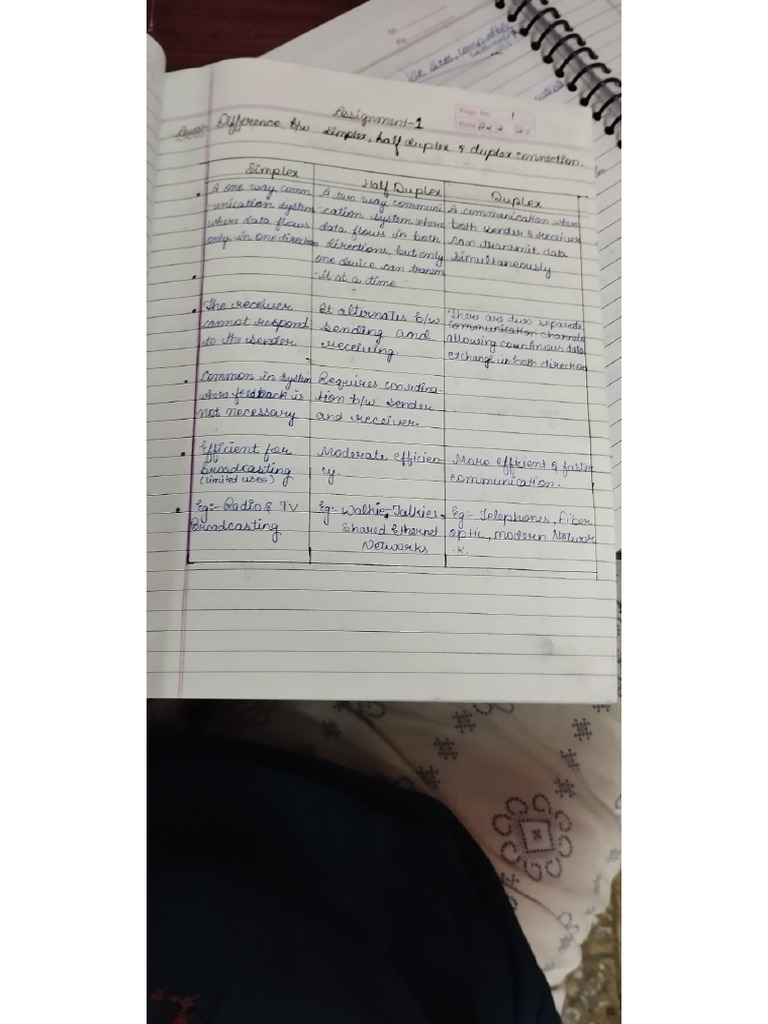 Assignment-1
Page No. 1
Date
Ques- Difference b/w simplex, half duplex & duplex connection.
Simplex
A one way comm
unication system
where data flows
only in one direction
The receiver
cannot respond
to the sender
Common in system
where feedback is
not necessary
Efficient for
broadcasting
(limited uses)
Eg:- Radio & TV
Broadcasting
Half Duplex
A two way communi
-cation system where
data flows in both
directions, but only
one device can transm
-it at a time
It alternates b/w
sending and
receiving.
Requires coordina-
tion b/w sender
and receiver.
Moderate efficien
cy.
Eg:- Walkie-Talkies,
Shared Ethernet
Networks
Duplex
A communication where
both sender & receiver
can transmit data
simultaneously
There are two separate
communication channels
allowing continous data
exchange in both direction
More efficient & faster
communication.
Eg:- Telephones, Fiber
optic, modern Networ
-k.